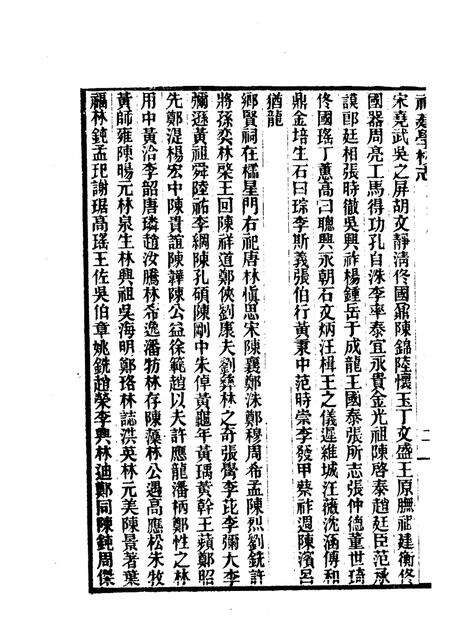 福建學校志
宋堯武吳之屏胡文靜清佟國鼐陳錦陸懷玉丁文盛王原膴祖建衡佟
國器周亮工馬得功孔自洙李率泰宜永貴金光祖陳啓泰趙廷臣范承
謨郎廷相張時徹吳興祚楊鍾岳于成龍王國泰張所志張仲德董世琦
佟國瑤丁蕙高曰聰興永朝石文炳汪楫王之儀遲維城汪薇沈涵傅和
鼎金培生石曰琮李斯義張伯行黃秉中范時崇李發甲蔡祚週陳濱呂
猶龍
鄉賢祠在櫺星門右祀唐林慎思宋陳襄鄭洙鄭穆周希孟陳烈劉銑許
將孫奕林槩王回陳祥道鄭俠劉康夫劉彝林之奇張嶲李玘李彌大李
彌遜黃祖舜陸祐李綱陳孔碩陳剛中朱倬黃龜年黃瑀黃榦王蘋鄭昭
先鄭湜楊宏中陳貴誼陳韡陳公益徐範趙以夫許應龍潘柄鄭性之林
用中黃洽李韶唐璘趙汝騰林希逸潘牥林存陳藻林公遇高應松朱牧
黃師雍陳暘元林泉生林興祖吳海明鄭珞林誌洪英林元美陳景著葉
福林鈍孟玘謝琚高瑤王佐吳伯章姚銑趙榮李興林迪鄭同陳鈍周傑